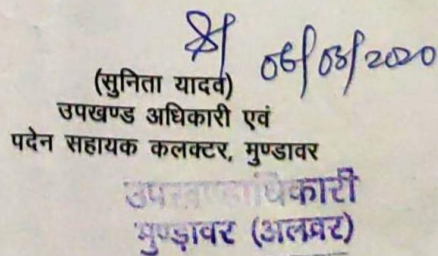 06/03/2020
(सुनिता यादव)
उपखण्ड अधिकारी एवं
पदेन सहायक कलक्टर, मुण्डावर
उपखण्डाधिकारी
मुण्डावर (अलवर)